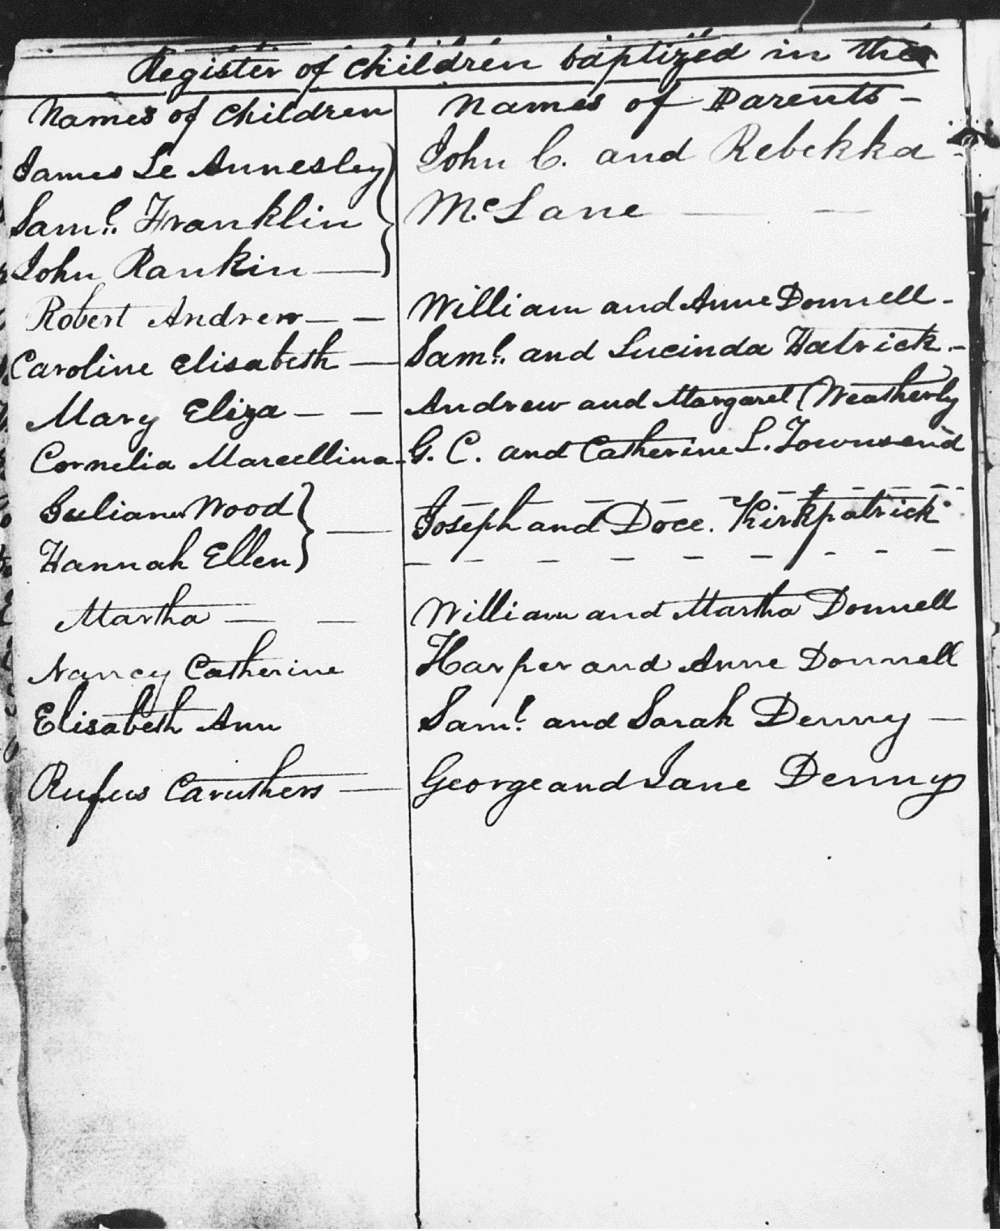 Register of children baptized in the
Names of Children Names of Parents -
James Le Annesley John C. and Rebekka
Saml. Franklin McLane — —
John Rankin —
Robert Andrew — — William and Anne Donnell -
Caroline Elisabeth — Saml. and Lucinda Hatrick -
Mary Eliza - — Andrew and Margaret Weatherly
Cornelia Marcellina - G. C. and Catherine L. Townsend
Juliana Wood — Joseph and Doce. Kirkpatrick
Hannah Ellen
Martha — — William and Martha Donnell
Nancy Catherine Harper and Anne Donnell
Elisabeth Ann Saml. and Sarah Denny —
Rufus Caruthers — George and Jane Denny